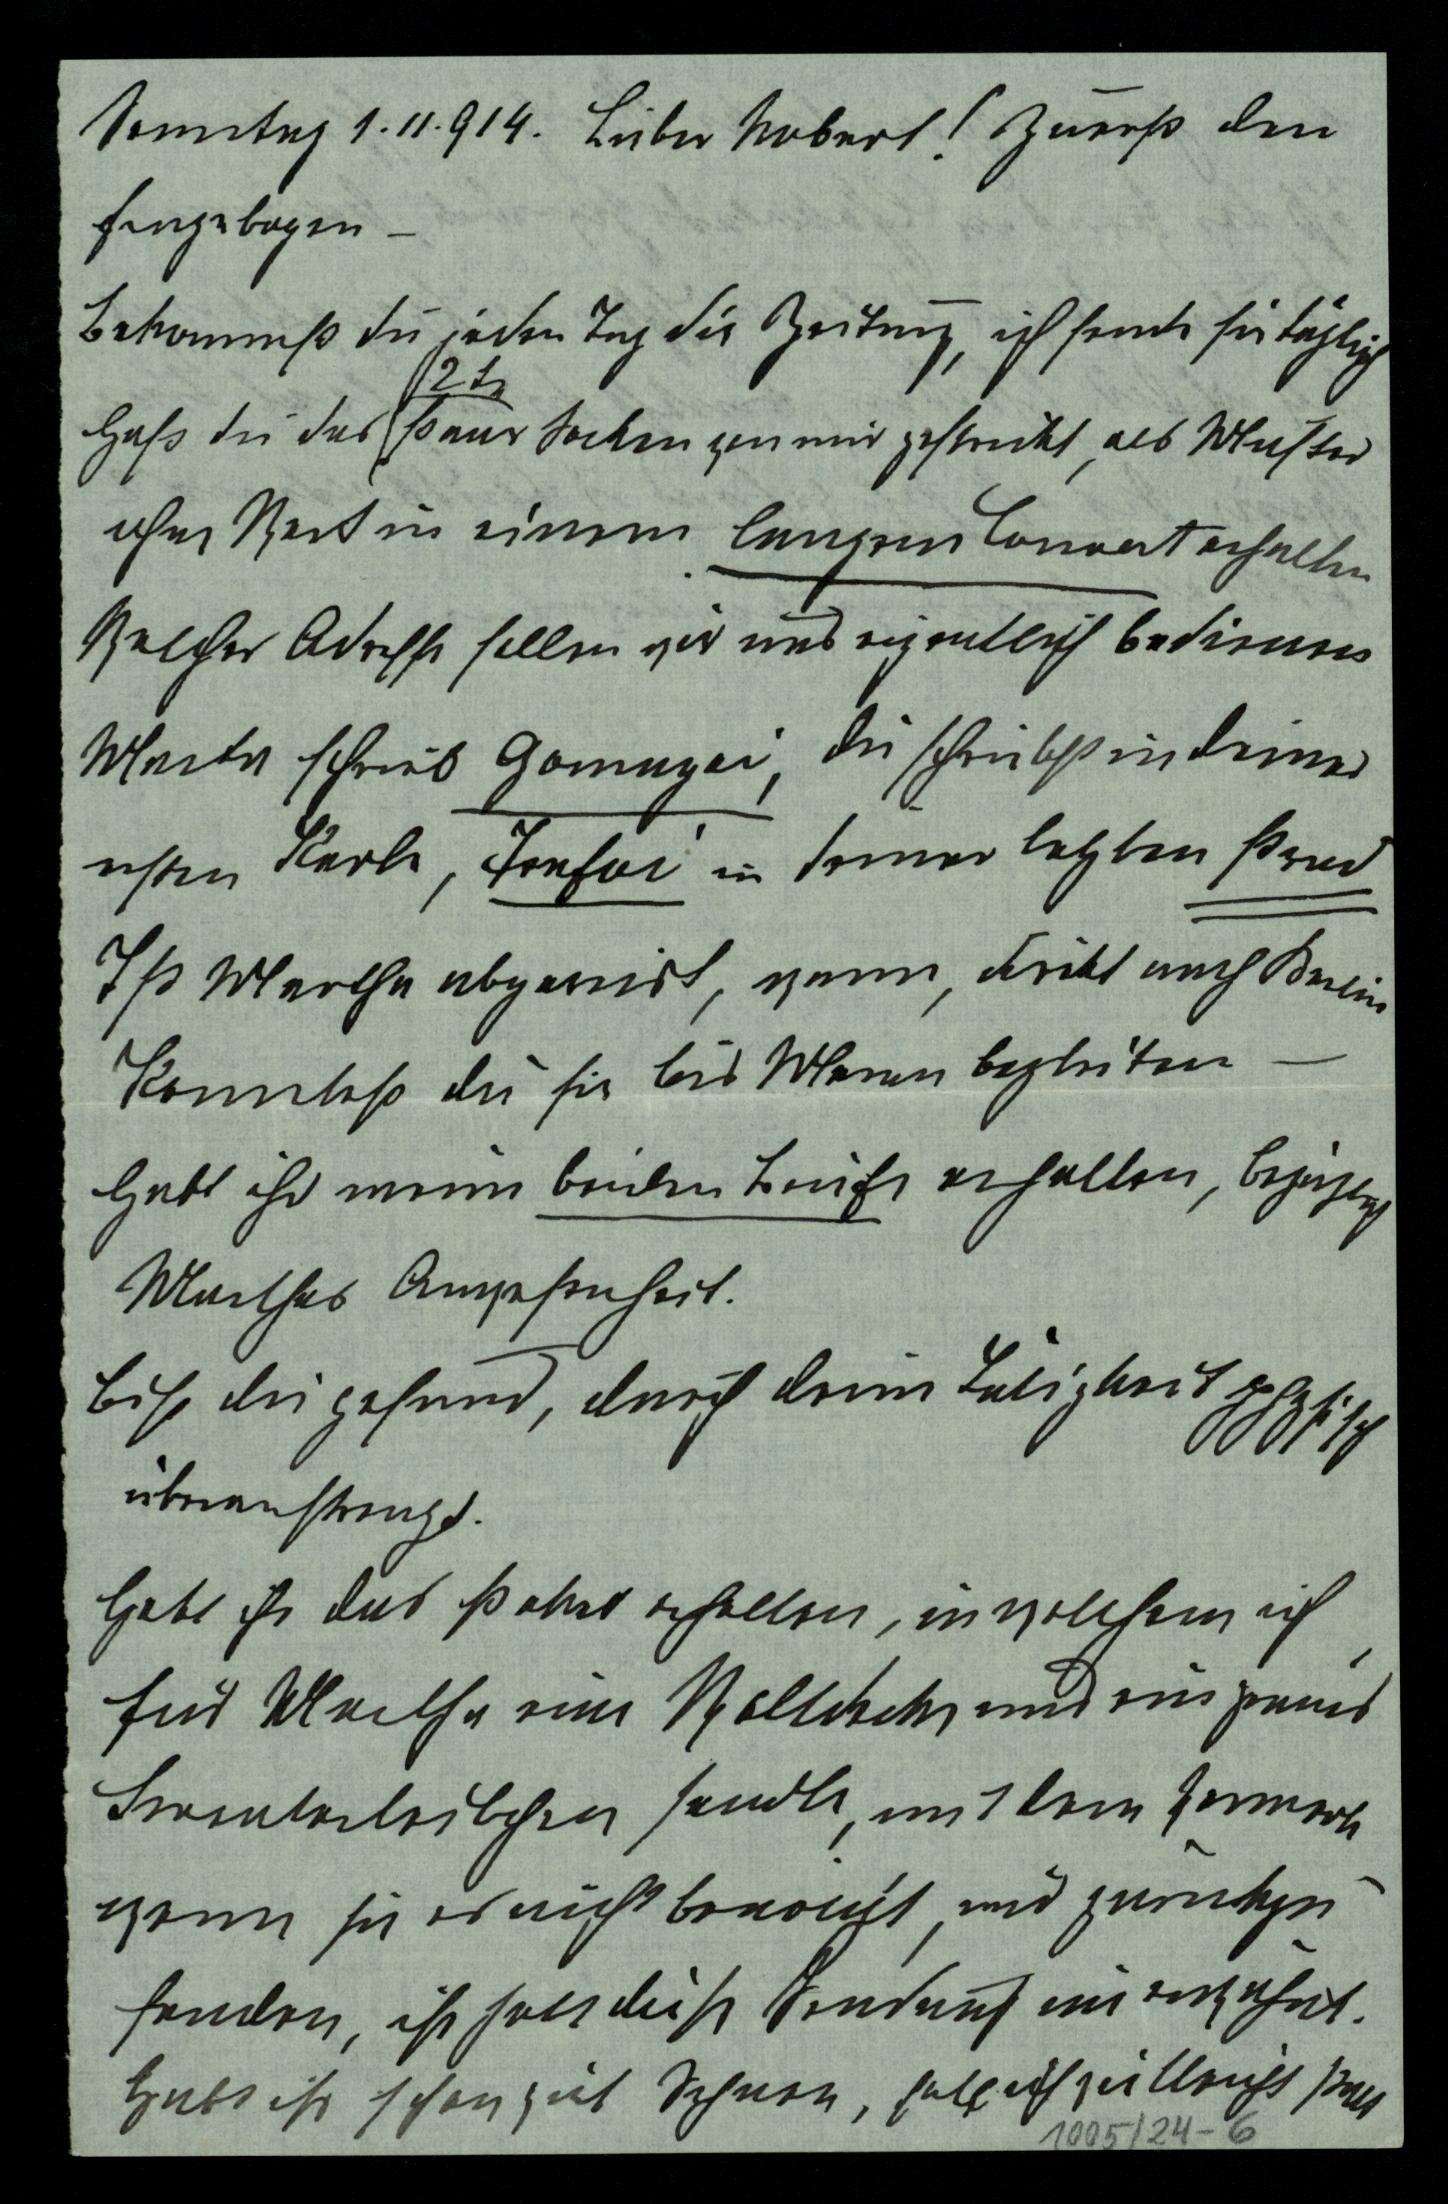 Sonntag 1.11.914. Lieber Robert! Zuerst den
Fragebogen –
Bekommst du jeden Tag die Zeitung, ich sende sie täglich
Hast du das 2te Paar Socken von mir gestrickt, als Muster
ohne Wert in einem langen Couvert erhalten
Welcher Adresse sollen wir uns eigentlich bedienen
Martha schrieb Gomagoi, du schriebst in deiner
ersten Karte, Trafoi in deiner letzten Prad
Ist Martha abgereist, wann, direkt nach Berlin
Konntest du sie bis Meran begleiten –
Habt ihr meine beiden Briefe erhalten, bezüglich
Marthas Anwesenheit.
Bist du gesund, durch deine Tätigkeit physisch
überanstrengt.
Habt ihr das Paket erhalten, in welchem ich
für Martha eine Wolldecke und ein
sandte, mit dem Vermerk
wenn sie es nicht braucht, uns zurückzu
senden, ihr habt diese Sendung nie erwähnt.
Habt ihr schon viel Schnee, habt ihr vielleicht
1005/24-6